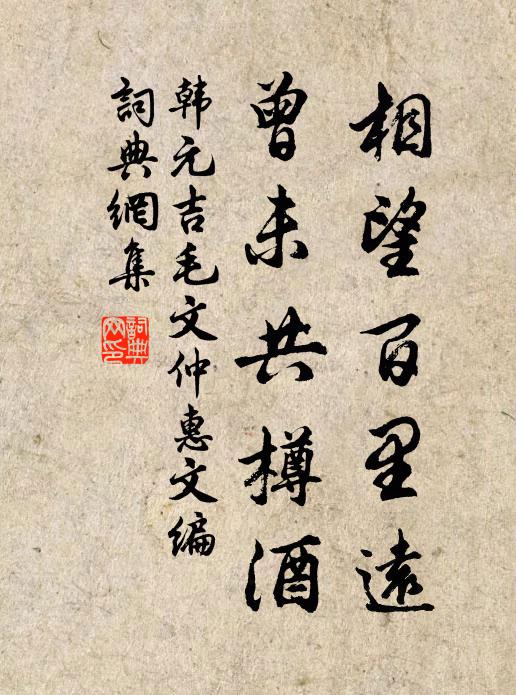 相望百里遠
曾未共樽酒
韩元吉毛文仲惠文编
詞典網集
詞典網印